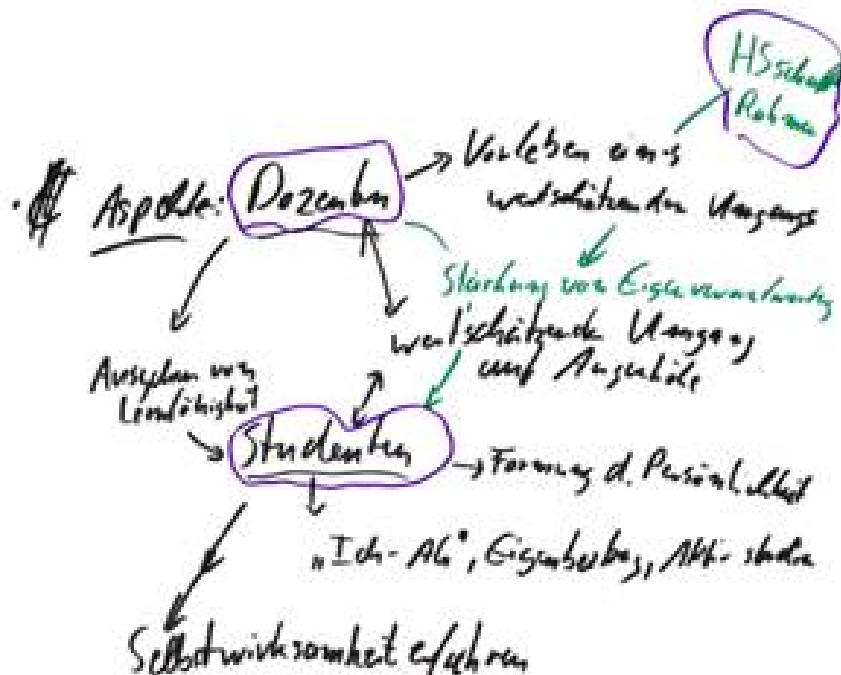 HS schafft
Rahmen
Aspekte: Dozenten
Vorleben eines
wertschätzenden Umgangs
Stärkung von Eigenverantwortung
wertschätzende Umgang
auf Augenhöhe
Ausgehen von
Lernfähigkeit
Studenten
Formung d. Persönlichkeit
"Ich-AG", Eigenbeitrag,
Selbstwirksamkeit erfahren